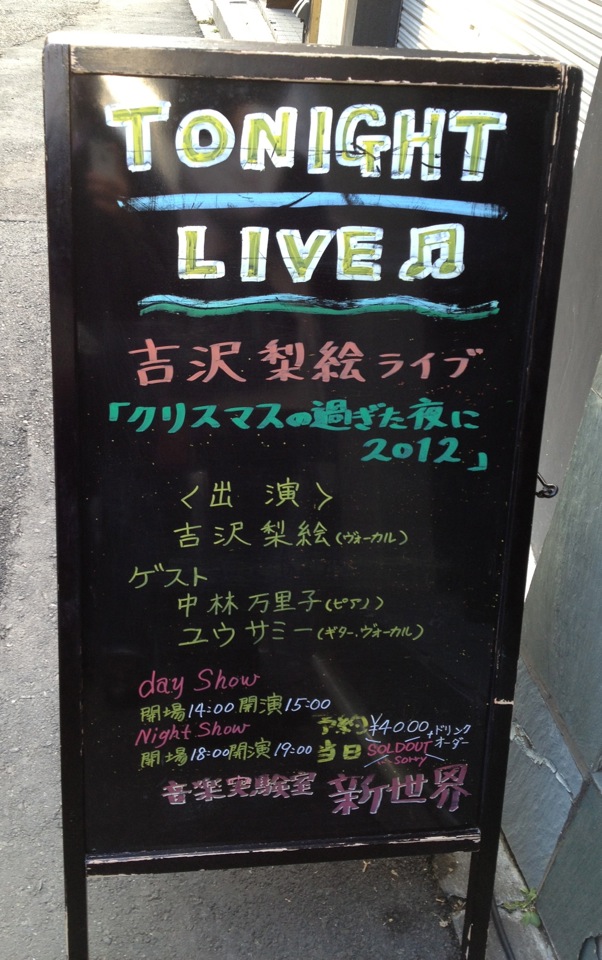 TONIGHT
LIVE♫
吉沢梨絵ライブ
「クリスマスの過ぎた夜に
2012」
〈出演〉
吉沢梨絵(ヴォーカル)
ゲスト
中林万里子(ピアノ)
ユウサミー(ギター、ヴォーカル)
day Show
開場14:00 開演15:00
Night Show
開場18:00開演19:00
予約¥4000+ドリンクオーダー
当日 SOLDOUT sorry
音楽実験室 新世界